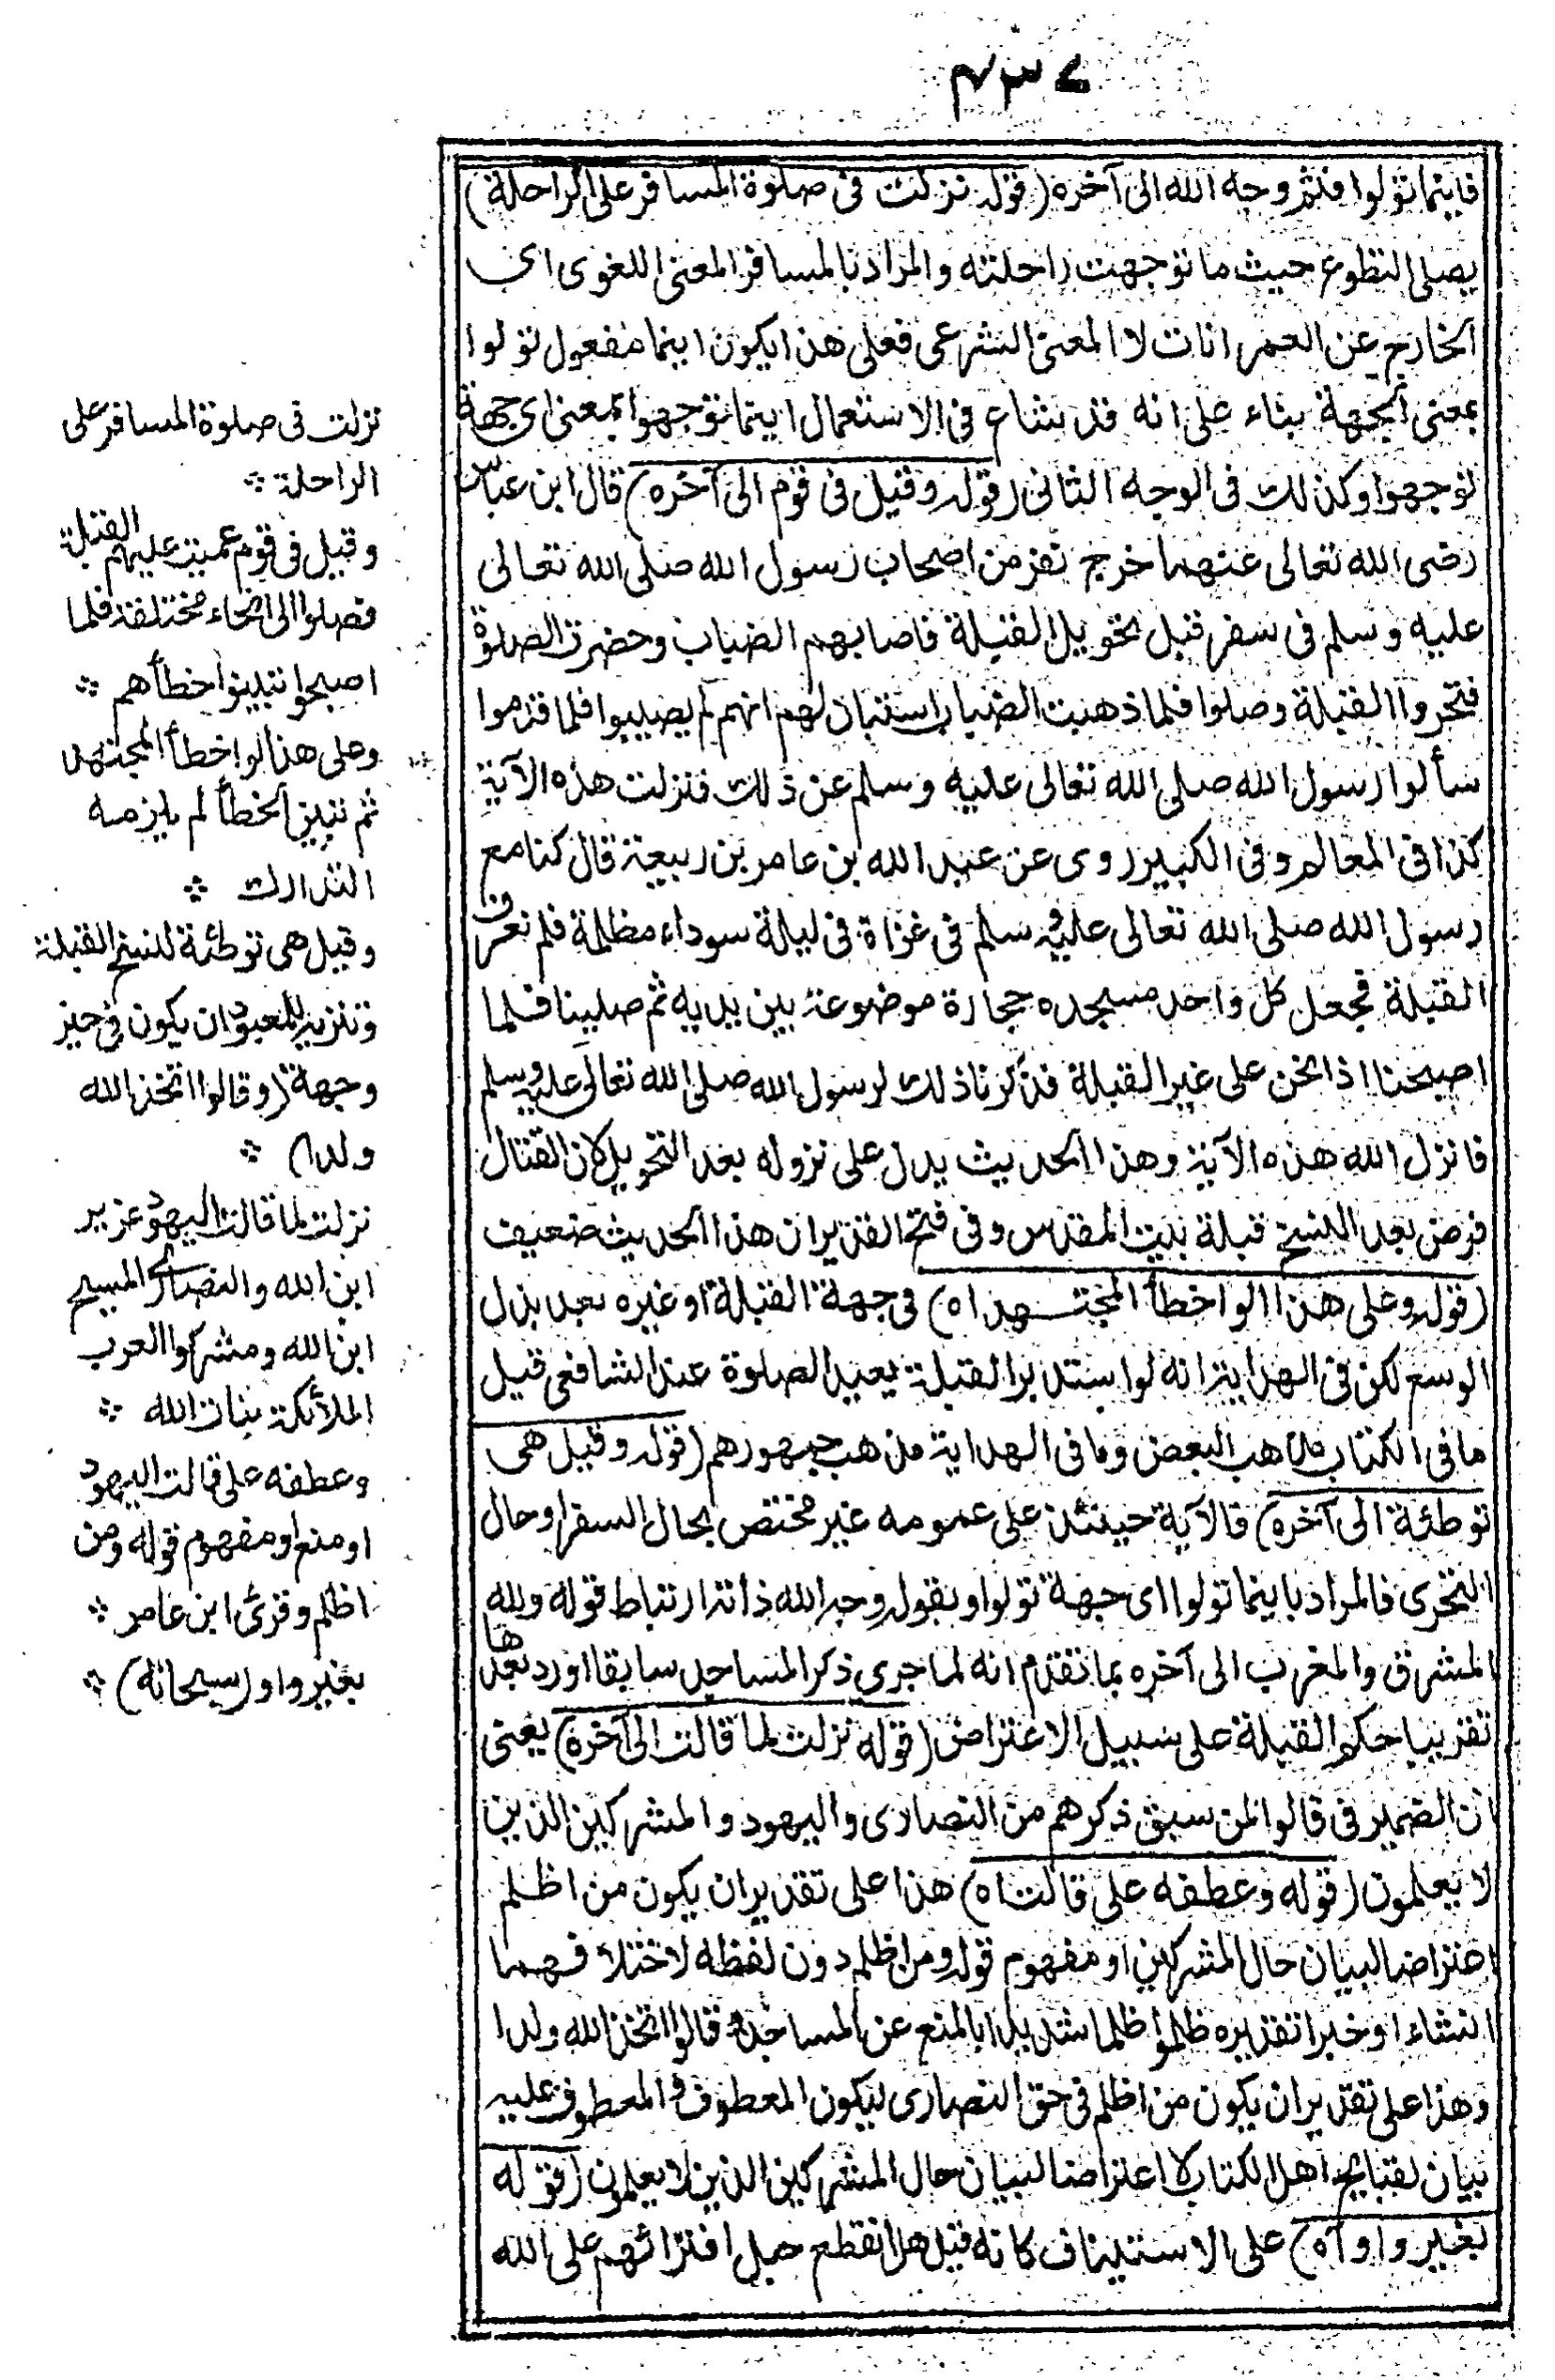 ٤٣٧
فاينما تولوا فثم وجه الله الى آخره (قوله نزلت فى صلوة المسافر على الراحلة)
يصلى التطوع حيث ما توجهت راحلته والمراد بالمسافر المعنى اللغوى اى
الخارج عن العمرانات لا المعنى الشرعى فعلى هذا يكون اينما مفعول تولوا
بمعنى الجهة بناء على انه قد شاع فى الاستعمال اينما توجهوا بمعنى اى جهة
توجهوا وكذلك فى الوجه الثانى (قوله وقيل فى قوم الى آخره) قال ابن عباس
رضى الله تعالى عنهما خرج نفر من اصحاب رسول الله صلى الله تعالى
عليه وسلم فى سفر قبل تحويل القبلة فاصابهم الضباب وحضرت الصلوة
فتحروا القبلة وصلوا فلما ذهبت الضباب استبان لهم انهم لم يصيبوا فلما قدموا
سألوا رسول الله صلى الله تعالى عليه وسلم عن ذلك فنزلت هذه الآية
كذا فى المعالم وفى الكبير روى عن عبد الله بن عامر بن ربيعة قال كنا مع
رسول الله صلى الله تعالى عليه وسلم فى غزاة فى ليلة سوداء مظلمة فلم نعرف
القبلة فجعل كل واحد مسجده حجارة موضوعة بين يديه ثم صلينا فلما
اصبحنا اذا نحن على غير القبلة فذكرنا ذلك لرسول الله صلى الله تعالى عليه وسلم
فانزل الله هذه الآية وهذا الحديث يدل على نزوله بعد التحويل لان القتال
فرض بعد النسخ قبلة بيت المقدس وفى فتح القدير ان هذا الحديث ضعيف
(قوله وعلى هذا لو اخطأ المجتهد اه) فى جهة القبلة او غيره بعد بذل
الوسع لكن فى الهداية انه لو استدبر القبلة يعيد الصلوة عند الشافعى قيل
ما فى الكتاب مذهب البعض وما فى الهداية مذهب جمهورهم (قوله وقيل هى
توطئة الى آخره) فالآية حينئذ على عمومه غير مختص بحال السفر او حال
التحرى فالمراد باينما تولوا اى جهة تولوا وبقوله وجه الله ذاته ارتباط قوله ولله
المشرق والمغرب الى آخره بما تقدم انه لما جرى ذكر المساجد سابقا اورد بعدها
تقريبا حكم القبلة على سبيل الاعتراض (قوله نزلت لما قالت الى آخره) يعنى
ان الضمير فى قالوا لمن سبق ذكرهم من النصارى واليهود والمشركين الذين
لا يعلمون (قوله وعطفه على قالت اه) هذا على تقدير ان يكون من اظلم
اعتراضا لبيان حال المشركين او مفهوم قوله ومن اظلم دون لفظه لاختلافهما
انشاء او خبرا تقديره ظلموا ظلما شديدا بالمنع عن المساجد وقالوا اتخذ الله ولدا
وهذا على تقدير ان يكون من اظلم فى حق النصارى ليكون المعطوف والمعطوف عليه
بيان لقبايح اهل الكتاب لا اعتراضا لبيان حال المشركين الذين لا يعلمون (قوله
بغير واو آه) على الاستيناف كانه قيل هل انقطع حبل افترائهم على الله
نزلت فى صلوة المسافر على
الراحلة ؞
وقيل فى قوم عميت عليهم القبلة
فصلوا الى انحاء مختلفة فلما
اصبحوا تبينوا خطأهم ؞
وعلى هذا لو اخطأ المجتهد
ثم تبين الخطأ لم يلزمه
التدارك ؞
وقيل هى توطئة لنسخ القبلة
وتنزيه للمعبود ان يكون فى حيز
وجهة (وقالوا اتخذ الله
ولدا) ؞
نزلت لما قالت اليهود عزير
ابن الله والنصارى المسيح
ابن الله ومشركوا العرب
الملائكة بنات الله ؞
وعطفه على قالت اليهود
او منع او مفهوم قوله ومن
اظلم وقرئ ابن عامر ؞
بغير واو (سبحانه) ؞